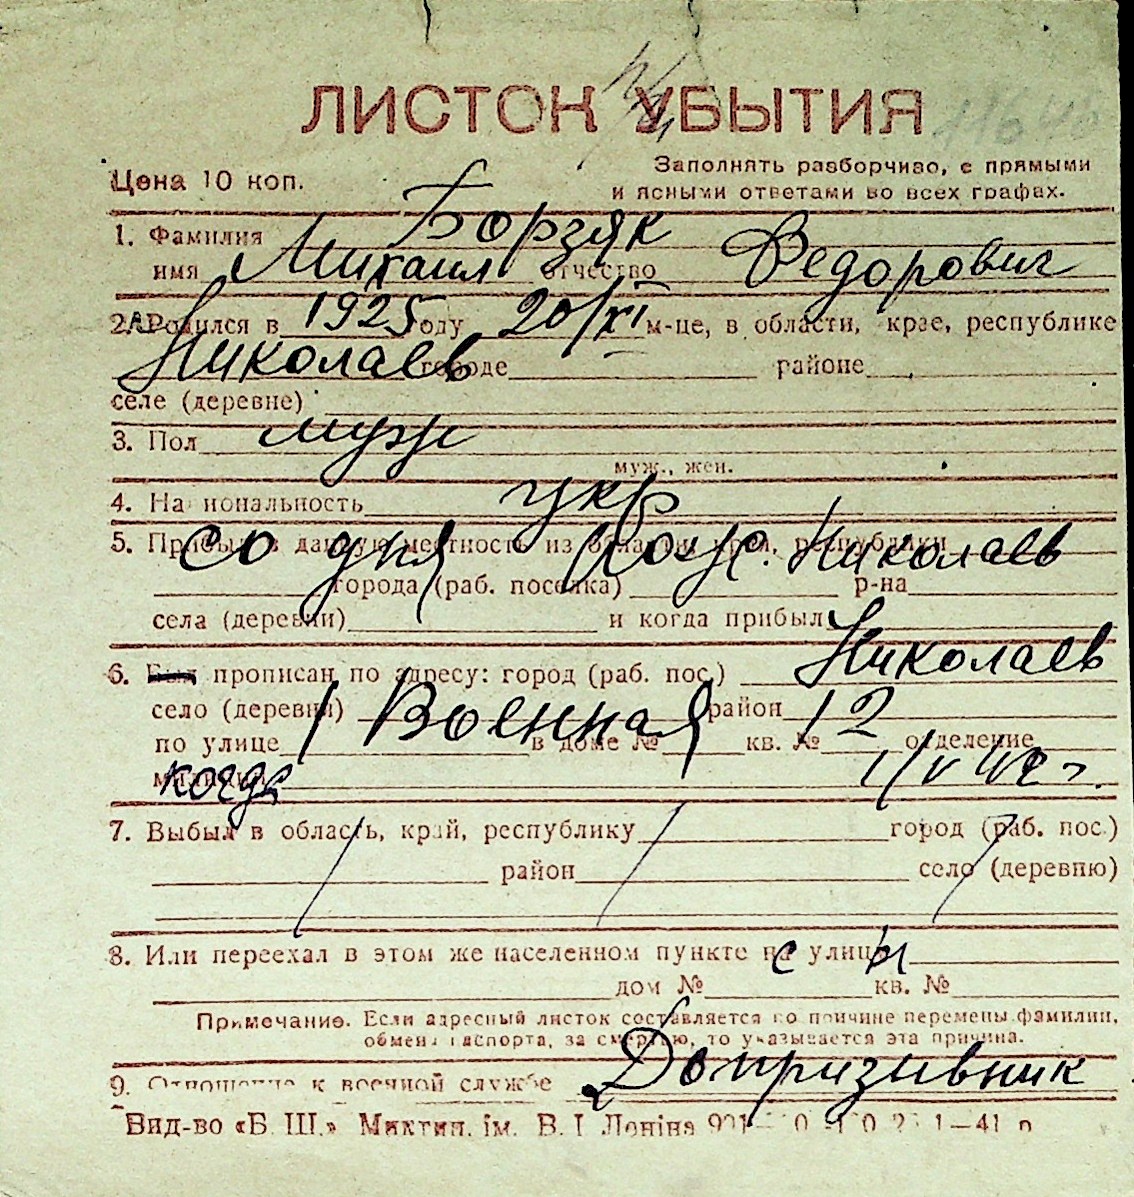 ЛИСТОК УБЫТИЯ
11640
Цена 10 коп.
Заполнять разборчиво, с прямыми
и ясными ответами во всех графах.
1. Фамилия Борзяк
имя Михаил отчество Федорович
2. Родился в 1925 году 20/XI м-це, в области, крае, республике
Николаев городе районе
селе (деревне)
3. Пол муж
муж., жен.
4. Национальность укр
5. Прибыл в данную местность из области, края, республики со дня рожд. Николаев
города (раб. поселка) р-на
села (деревни) и когда прибыл
6. Был прописан по адресу: город (раб. пос.) Николаев
село (деревня) район
по улице 1 Военная в доме № 12 кв. № отделение
милиции когда 1/V 42 г.
7. Выбыл в область, край, республику город (раб. пос.)
район село (деревню)
8. Или переехал в этом же населенном пункте с улицы
дом № кв. №
Примечание. Если адресный листок составляется по причине перемены фамилии,
обмена паспорта, за смертью, то указывается эта причина.
9. Отношение к военной службе Допризывник
Вид-во «Б. Ш.» Миктип. ім. В. І. Леніна